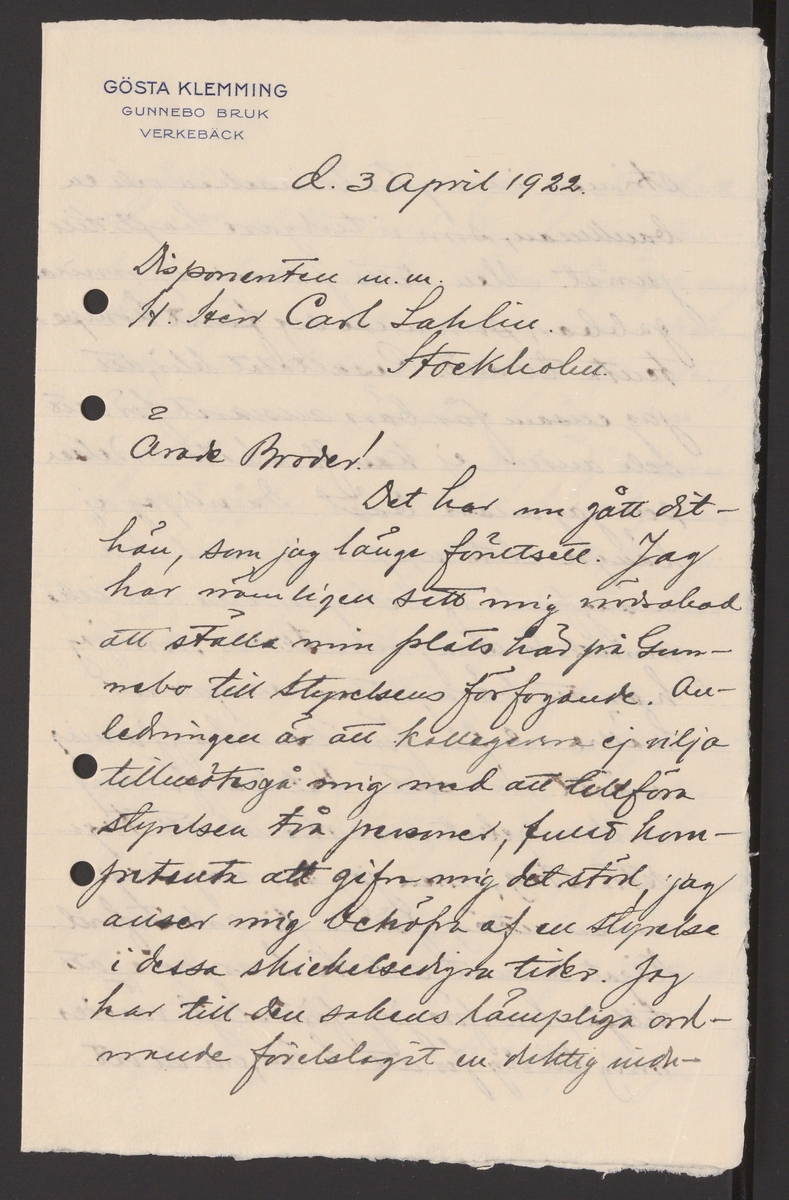 GÖSTA KLEMMING
GUNNEBO BRUK
VERKEBÄCK
d. 3 april 1922.
Disponenten m.m.
H. Herr Carl Sahlin.
Stockholm.
Ärade Broder!
Det har nu gått dit-
hän, som jag länge förutsett. Jag
har nämligen sett mig nödsakad
att ställa min plats här på Gun-
nebo till Styrelsens förfogande. An-
ledningen är att kollegerna ej vilja
tillmötesgå mig med att tillföra
styrelsen två personer, fullt kom-
petenta att gifva mig det stöd, jag
anser mig behöfva af en styrelse
i dessa skickelsedigra tider. Jag
har till den sakens lämpliga ord-
nande föreslagit en duktig indu-